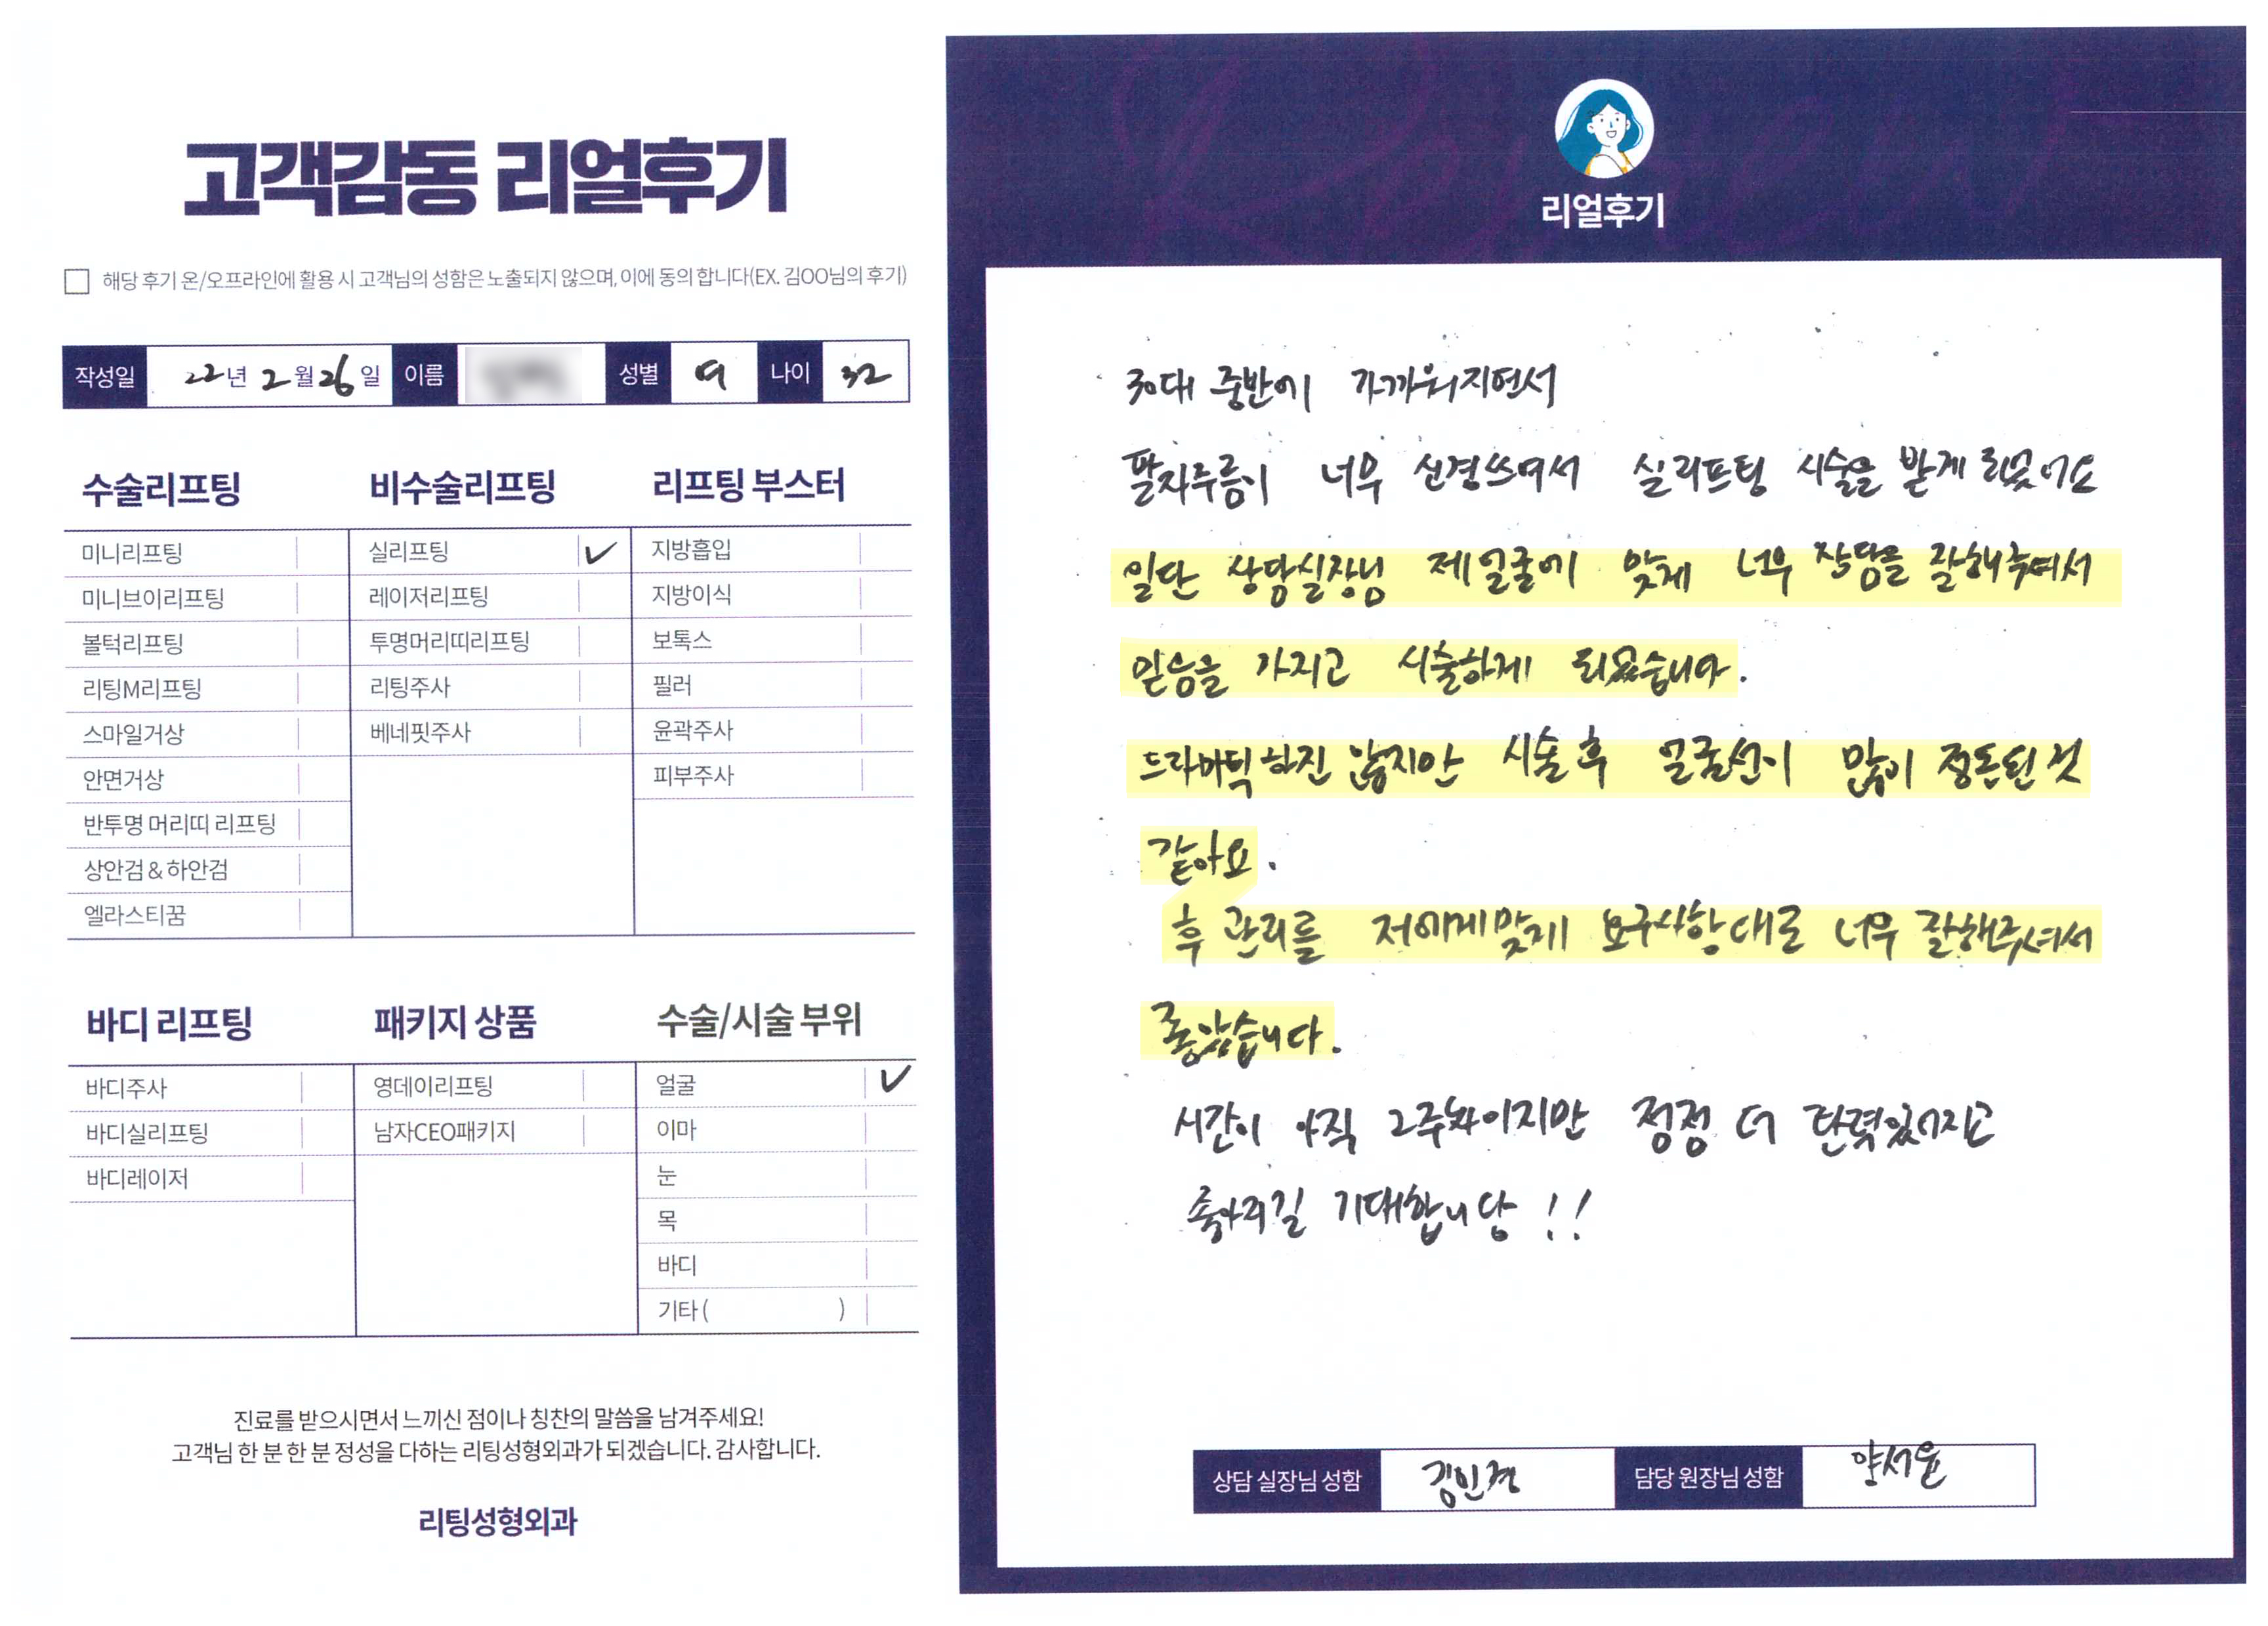 고객감동 리얼후기
해당 후기 온/오프라인에 활용 시 고객님의 성함은 노출되지 않으며, 이에 동의 합니다(EX. 김OO님의 후기)
작성일 22년 2월 26일 이름 성별 여 나이 32
수술리프팅 비수술리프팅 리프팅 부스터
미니리프팅 실리프팅 ✓ 지방흡입
미니브이리프팅 레이저리프팅 지방이식
볼턱리프팅 투명머리띠리프팅 보톡스
리팅M리프팅 리팅주사 필러
스마일거상 베네핏주사 윤곽주사
안면거상 피부주사
반투명 머리띠 리프팅
상안검 & 하안검
엘라스티꿈
바디 리프팅 패키지 상품 수술/시술 부위
바디주사 영데이리프팅 얼굴 ✓
바디실리프팅 남자CEO패키지 이마
바디레이저 눈
목
바디
기타 ( )
진료를 받으시면서 느끼신 점이나 칭찬의 말씀을 남겨주세요!
고객님 한 분 한 분 정성을 다하는 리팅성형외과가 되겠습니다. 감사합니다.
리팅성형외과
리얼후기
30대 중반에 가까워지면서
팔자주름이 너무 신경쓰여서 실리프팅 시술을 받게 되었어요
일단 상담실장님 제얼굴에 맞게 너무 상담을 잘해주셔서
믿음을 가지고 시술하게 되었습니다.
드라마틱 하진 않지만 시술 후 얼굴선이 많이 정돈된 것
같아요.
후 관리를 저에게맞게 요구사항대로 너무 잘해주셔서
좋았습니다.
시간이 아직 2주차이지만 점점 더 탄력있어지고
좋아지길 기대합니당 !!
상담 실장님 성함 김민정 담당 원장님 성함 양서윤